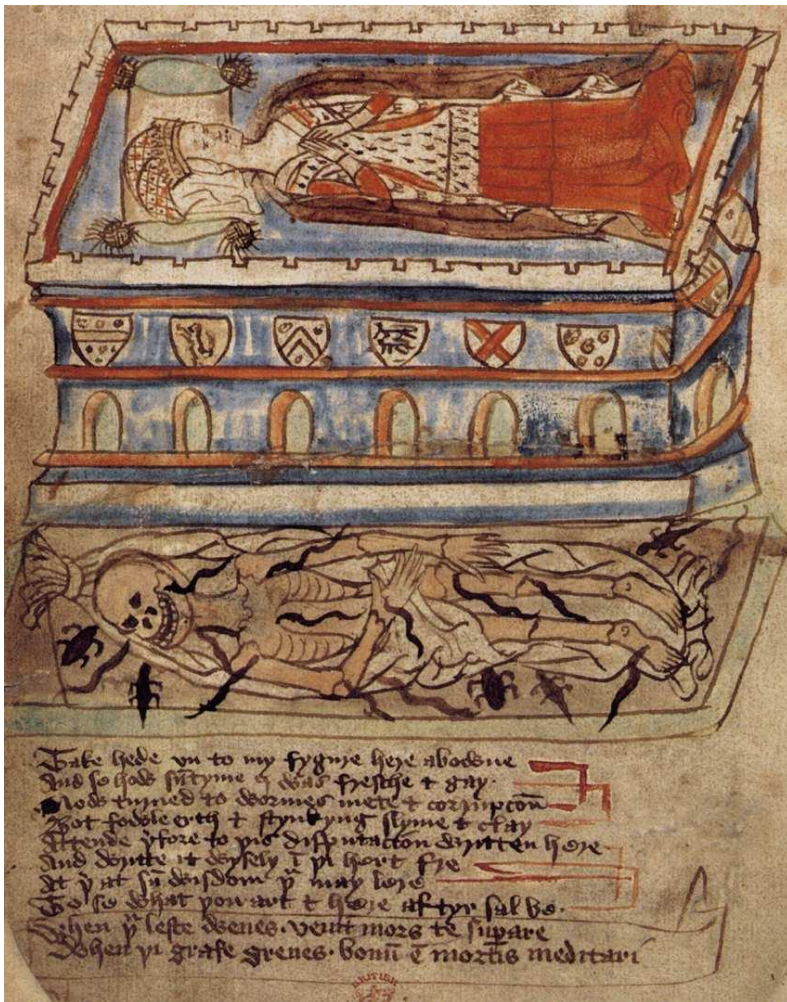 Take hede vn to my fygure here abowne
And se how sũtyme I was fresche & gay
Now turned to wormes mete & corrupcoñ
Bot fowle erth & stynkyng slyme & clay
Attende þfore to þis disputacion written here
And writte it wysely ī þi hert fre
At þ at sũ wisdom þᵘ may lere
To se what þou art & here aftyr sal be.
When þᵘ leste wenes. venit mors te supare
When þi grafe grenes. bonũ ē mortis meditari
BRITISH